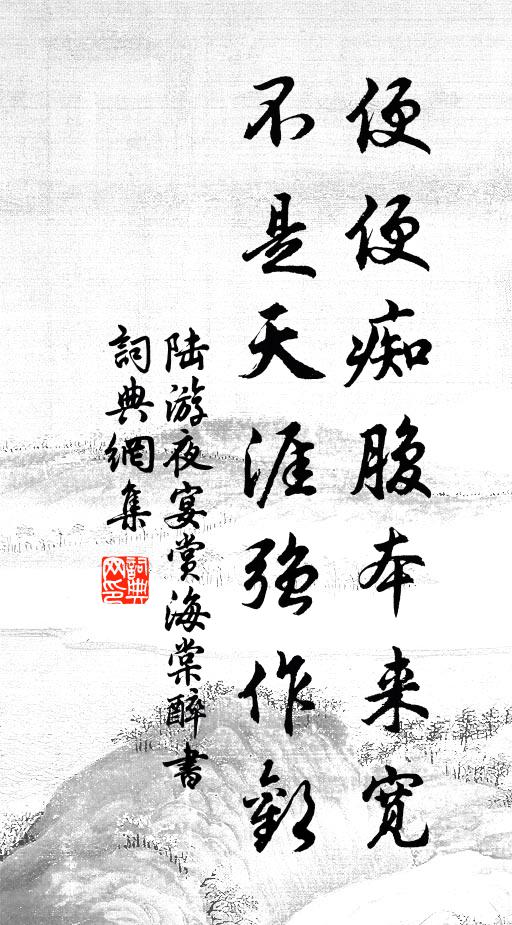 便便痴腹本来寛
不是天涯強作歡
陆游夜宴赏海棠醉書
詞典網集
詞典
网印